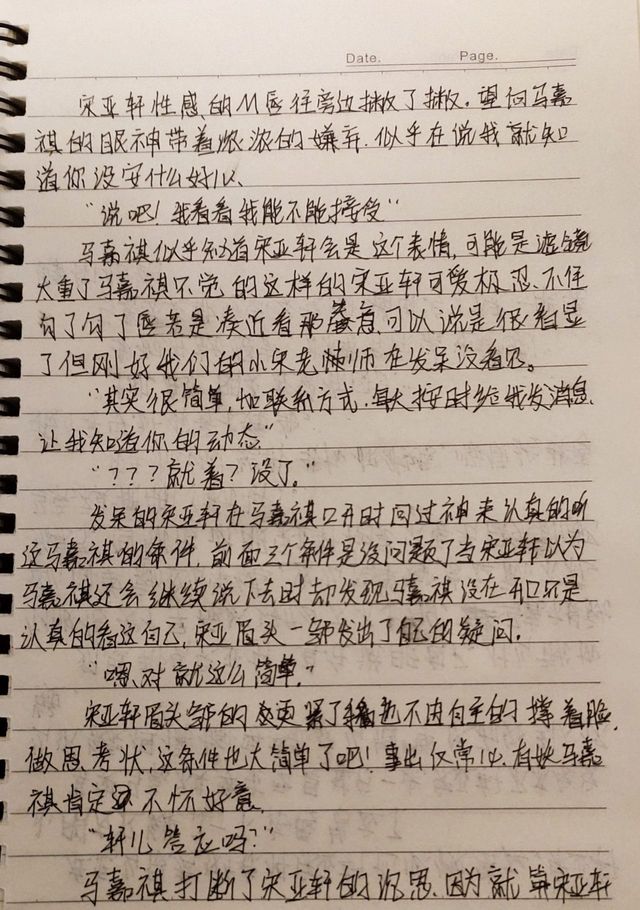 Date.	Page.
宋亚轩性感的M唇往旁边撇了撇.望向马嘉
祺的眼神带着浓浓的嫌弃.似乎在说我就知
道你没安什么好心、
“说吧!我看看我能不能接受”
马嘉祺似乎知道宋亚轩会是这个表情,可能是滤镜
太重了马嘉祺只觉的这样的宋亚轩可爱极忍、不住
勾了勾了唇若是凑近看那 可以说是很看显
了但刚好我们的小宋老师在发呆没看见。
“其实很简单,加联系方式.每天按时给我发消息、
让我知道你的动态”
“???就着?没了。”
发呆的宋亚轩在马嘉祺口开时回过神来认真的听
这马嘉祺的条件,前面三个条件是没问题了当宋亚轩以为
马嘉祺还会继续说下去时却发现马嘉祺没在开口只是
认真的看这自己,宋亚眉头一邹发出了自己的疑问.
“嗯、对就这么简单.”
宋亚轩眉头邹的 更紧了 也不由自主的撑着脸,
做思考状,这条件也太简单了吧!事出仅常必、有妖马嘉
祺肯定 不怀好意.
“轩儿答应吗?”
马嘉祺打断了宋亚轩的沉思、因为就算宋亚轩